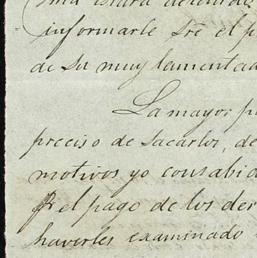 informarle sre el p
de su muy lamentad
La mayor p
preciso de sacarlos, de
motivos yo consabid
el pago de los der
haverles examinado